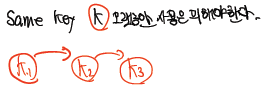 Same key K 오랫동안 사용은 피해야한다.
K₁ → K₂ → K₃